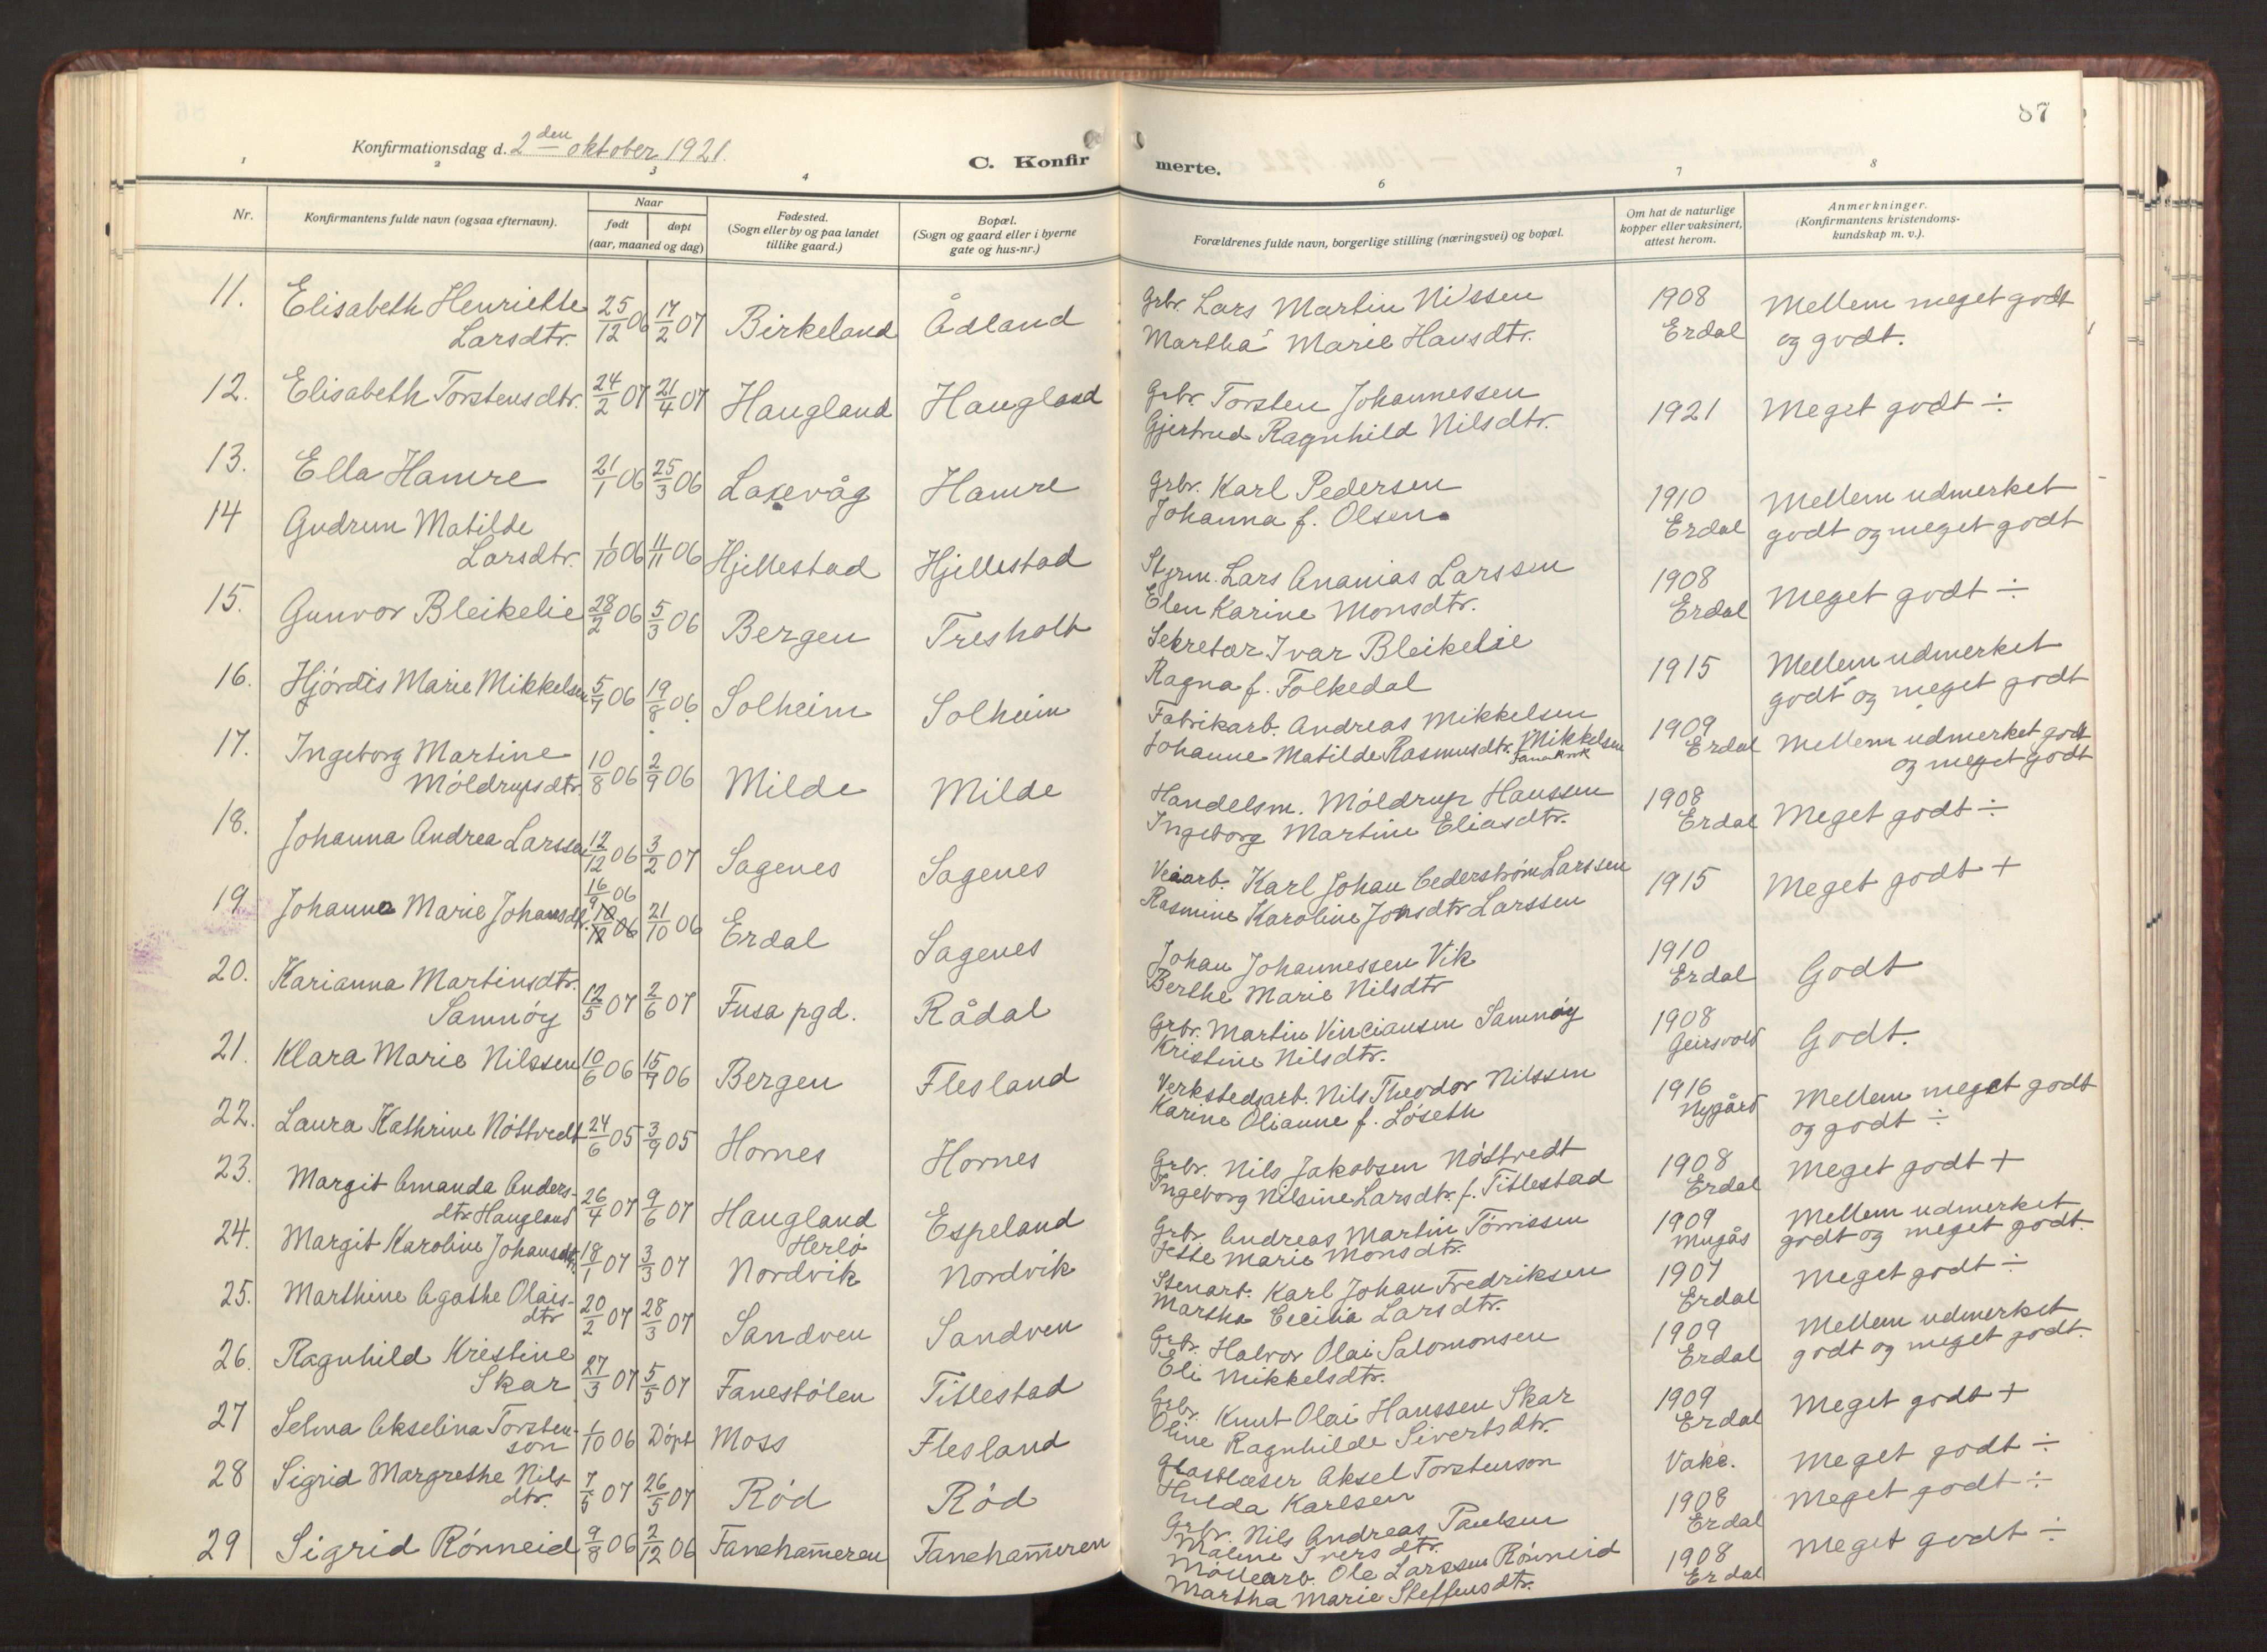 87
Konfirmationsdag d. 2den oktober 1921.
C. Konfirmerte.
1 2 3 4 6 7 8
Nr. Konfirmantens fulde navn (ogsaa efternavn). Naar født døpt (aar, maaned og dag) Fødested. (Sogn eller by og paa landet tillike gaard.) Bopæl. (Sogn og gaard eller i byerne gate og hus-nr.) Forældrenes fulde navn, borgerlige stilling (næringsvei) og bopæl. Om hat de naturlige kopper eller vaksinert, attest herom. Anmerkninger. (Konfirmantens kristendoms-kundskap m. v.).
11. Elisabeth Henriette 25/12 06 17/2 07 Birkeland Ådland Grbr. Lars Martin Nilssen 1908 Mellem meget godt
Larsdtr. Martha Marie Hansdtr. Erdal og godt.
12. Elisabeth Torstensdtr. 24/2 07 21/4 07 Haugland Haugland Grbr. Torsten Johannessen 1921 Meget godt ÷
Gjertrud Ragnhild Nilsdtr.
13. Ella Hamre 21/1 06 25/3 06 Laxevåg Hamre Grbr. Karl Pedersen 1910 Mellem udmerket
Johanna f. Olsen. Erdal godt og meget godt
14 Gudrun Matilde 1/10 06 11/11 06 Hjellestad Hjellestad Styrm. Lars Ananias Larssen 1908 Meget godt ÷
Larsdtr. Elen Karine Monsdtr. Erdal
15. Gunvor Bleikelie 28/2 06 5/3 06 Bergen Tresholt Sekretær Ivar Bleikelie 1915 Mellem udmerket
Ragna f. Folkedal godt og meget godt
16. Hjórdis Marie Mikkelsen 5/7 06 19/8 06. Solheim Solheim Fabrikarb. Andreas Mikkelsen 1909 Mellem udmerket godt
Johanne Matilde Rasmusdtr. Mikkelsen Erdal og meget godt
17. Ingeborg Martine 10/8 06 2/9 06 Milde Milde Handelsm. Móldrup Hanssen 1908 Meget godt ÷
Móldrupsdtr. Ingeborg Martine Eliasdtr. Erdal
18. Johanna Andrea Larssen 12/12 06 3/2 07 Sagenes Sagenes Veiarb. Karl Johan Cederstróm Larssen 1915 Meget godt +
Rasmine Karoline Jonsdtr Larssen
16/9 06
19 Johanna Marie Johansdtr. 21/10 06 Erdal Sagenes Johan Johannessen Vik 1910 Godt
Berthe Marie Nilsdtr Erdal
20. Karianna Martinsdtr. 12/5 07 2/6 07 Fusa pgd. Rådal Grbr. Martin Vinciansen Samnóy 1908 Godt.
Samnóy Kristine Nilsdtr. Geirsvold
21. Klara Marie Nilssen 10/6 06 15/9 06 Bergen Flesland Verkstedsarb. Nils Theodor Nilssen 1916 Mellem meget godt
Karine Olianne f. Lóseth Nygård og godt ÷
22. Laura Kathrine Nóttvedt 24/6 05 3/9 05 Hornes Hornes Grbr. Nils Jakobsen Nóttvedt 1908 Meget godt +
Ingeborg Nilsine Larsdtr. f. Titlestad Erdal
23. Margit Amanda Anders- 26/4 07 9/6 07 Haugland Espeland Grbr. Andreas Martin Tórrissen 1909 Mellem udmerket
dtr. Haugland Herló Jette Marie Monsdtr. Mugås godt og meget godt.
24. Margit Karoline Johansdtr. 18/1 07 3/3 07 Nordvik Nordvik Stenarb. Karl Johan Fredriksen 1907 Meget godt ÷
Martha Cecilia Larsdtr. Erdal
25. Marthine Agathe Olais- 20/2 07 28/3 07 Sandven Sandven Grbr. Halvor Olai Salomonsen 1909 Mellem udmerket
dtr Eli Mikkelsdtr. Erdal godt og meget godt.
26. Ragnhild Kristine 27/3 07 5/5 07 Fanestólen Titlestad Grbr. Knut Olai Hanssen Skar 1909 Meget godt +
Skar Oline Ragnhilde Sivertsdtr. Erdal
27 Selma Akselina Torsten- 1/10 06 Dópt Moss Flesland Glasblæser Aksel Torstenson Vakc. Meget godt ÷
son Hulda Karlsen
28 Sigrid Margrethe Nils- 7/5 07 26/5 07 Ród Ród Grbr. Nils Andreas Paulsen 1908 Meget godt ÷
dtr. Maline Iversdtr. Erdal
29 Sigrid Rónneid 9/8 06 2/12 06 Fanehameren Fanehameren Móllearb. Ole Larssen Rónneid 1908 Meget godt ÷
Martha Marie Steffensdtr. Erdal